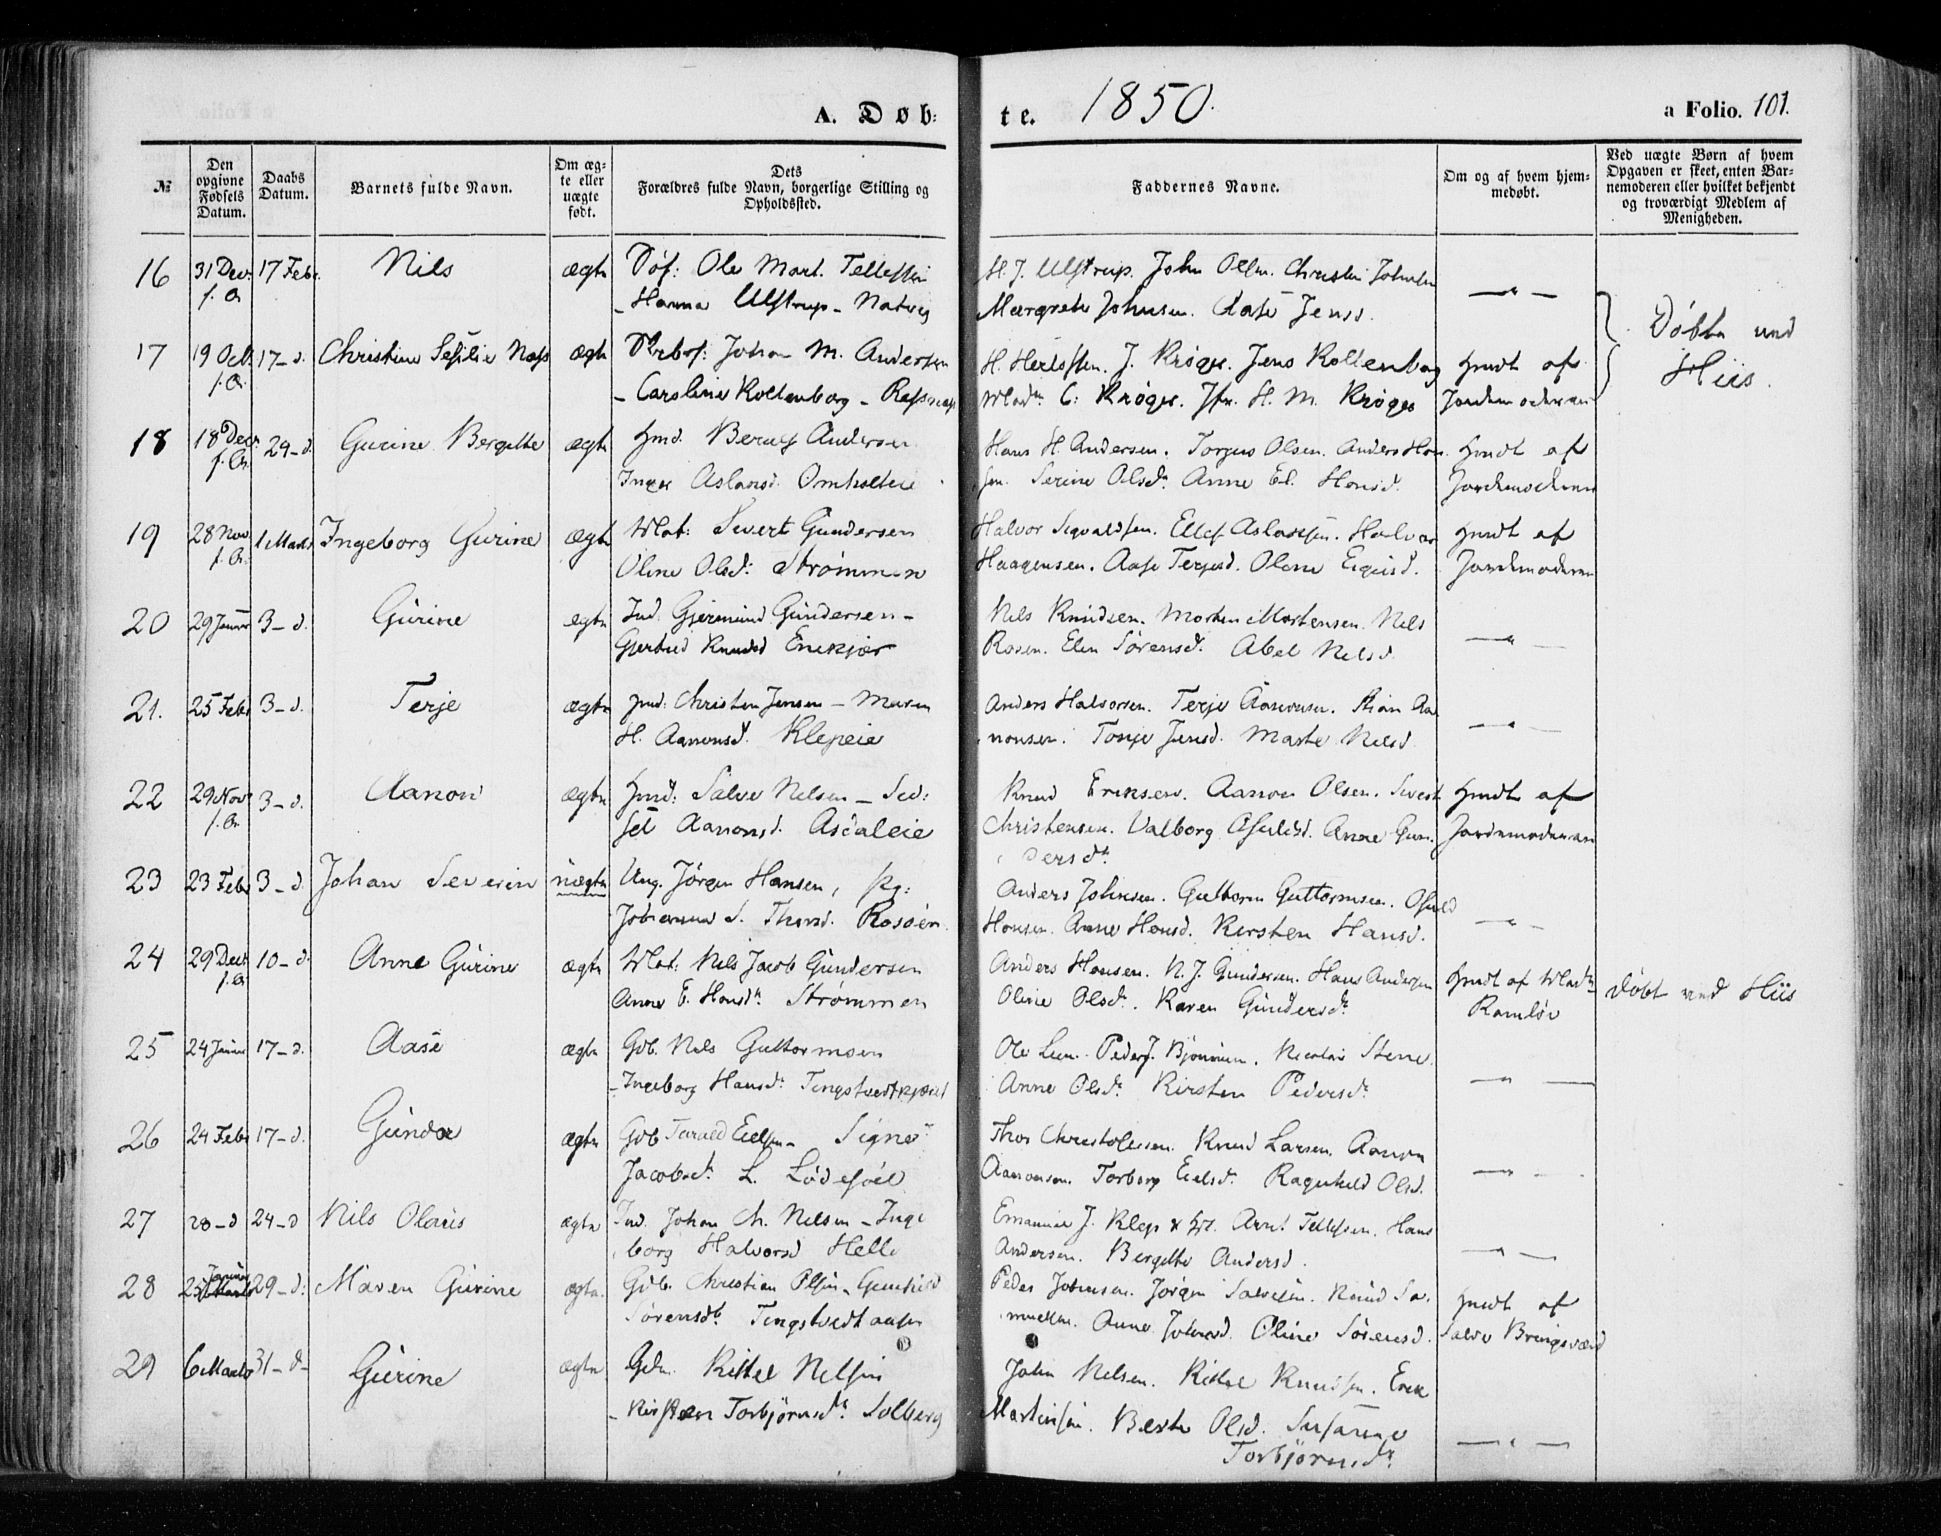 A. Døb:
te. 1850.
a Folio. 101.
№
Den opgivne Fødsels Datum.
Daabs Datum.
Barnets fulde Navn.
Om ægte eller uægte født.
Dets Forældres fulde Navn, borgerlige Stilling og Opholdssted.
Faddernes Navne.
Om og af hvem hjemmedøbt.
Ved uægte Børn af hvem Opgaven er skeet, enten Barnemoderen eller hvilket bekjendt og troværdigt Medlem af Menigheden.
16 31 Decr. 17 Febr. Nils ægte Ole Mart. Tellefsen
f. A. Hanna Ulstrup - Natvig
H. J. Ulstrup. John Olsen. Christen Johnsen
Margrete Johnsen. Aase Jensd.
17 19 Octb. 17-d. Christine Sesilie Næss ægte Johan M. Andersen
f. A. - Caroline Koltenborg - Refsnæs
J. Krøger. Jens Koltenborg hmdt af
C: Krøger. Jfr. H. M. Krøger Jordemoderen
Døbte ved
Hiis.
18 18 Decr. 24-d. Gurine Bergitte ægte Hmd. Berulf Andersen
f. A. Inger Aslaksd. Omholteie
Hans H. Andersen. Torjus Olsen. Anders Han- hmdt af
sen. Serine Olsdr. Anne El. Hansd. Jordemoderen
19 28 Nov. 1 Marts Ingeborg Gurine ægte Mat: Sivert Gundersen
f. A. Oline Olsd: Strømmen
Halvor Sigvaldsen. Ellef Aslaksen. Halvor hmdt af
Haagensen. Aase Terjesd. Olene Jordemoderen
20 29 Januar 3-d. Gurine ægte Ind. Gjermund Gundersen -
Gjertrud Knudsd Enekjær
Nils Knudsen. Morten Mortensen. Nils
Rosen. Elen Sørensd. Abel Nilsd.
21. 25 Febr 3-d. Terje ægte Hmd: Christen Jensen - Maren
H. Aanonsd. Klepeie
Anders Halvorsen. Terje Aanonsen. Stian Aa-
nonsen. Tonje Jensd. Marte Nilsd.
22 29 Nov. 3-d. Aanon ægte Hmd: Salve Nilsen - Sid:
f. A. sel Aanonsd. Asdaleie
Knud Eriksen. Aanon Olsen. Sivert hmdt af
Christensen. Valborg Osuldsd. Anne Gun- Jordemoderen
dersdr.
23 23 Febr 3-d. Johan Severin uægte Ung. Jörgen Hansen, Pg:
Johanne S. Thorsd. Rosöen
Anders Johnsen. Guttorm Guttormsen. Osuld
Hansen. Anne Hansd. Kirsten Hansd.
24 29 Decr 10-d. Anne Gurine ægte Mat: Nils Jacob Gundersen
f. A. Anne E. Hansdr. Strømmen
Anders Hansen. N. J. Gundersen. Hans Andersen hmdt af Madm
Oline Olsdr. Karen Gundersdr. Ramløv
døbt ved Hiis
25 24 Januar 17-d. Aase ægte Gdb. Nils Guttormsen
- Ingeborg Hansdr. Tingstvedtkjæret
Ole Peder J. Nicolai Stene
Anne Olsdr. Kirsten Pedersdr.
26 24 Febr 17-d. Gunder ægte Gdb Tarald Eielsen - Signe
Jacobsdr. L. Lødesøel
Thor Christofersen. Knud Larsen. Aanon
Aanonsen. Torborg Eielsdr. Ragnhild Olsd.
27 28-d 24-d Nils Olaus ægte Ind. Johan Ch. Nilsen - Inge-
borg Halvorsd Helle
Emanuel J. Klep & Arnt Tellefsen. Hans
Andersen. Bergitte Andersd.
28 25 Januar 29-d: Maren Gurine ægte Gdb. Christian Olsen - Gunhild
Sørensdr. Tingstvedtaasen
Peder Johnsen. Jörgen Salvesen. Knud Sa- hmdt af
muelsen. Anne Johnsd. Oline Sørensd. Salve Bringsværd
29 6 Marts 31-d- Gurine ægte Kittel Nilsen
- Kirsten Torbjörnsdr. Solberg
John Nilsen. Kittel Knudsen. Erik
Martinsen. Berte Olsd. Susanne
Torbjörnsdr.